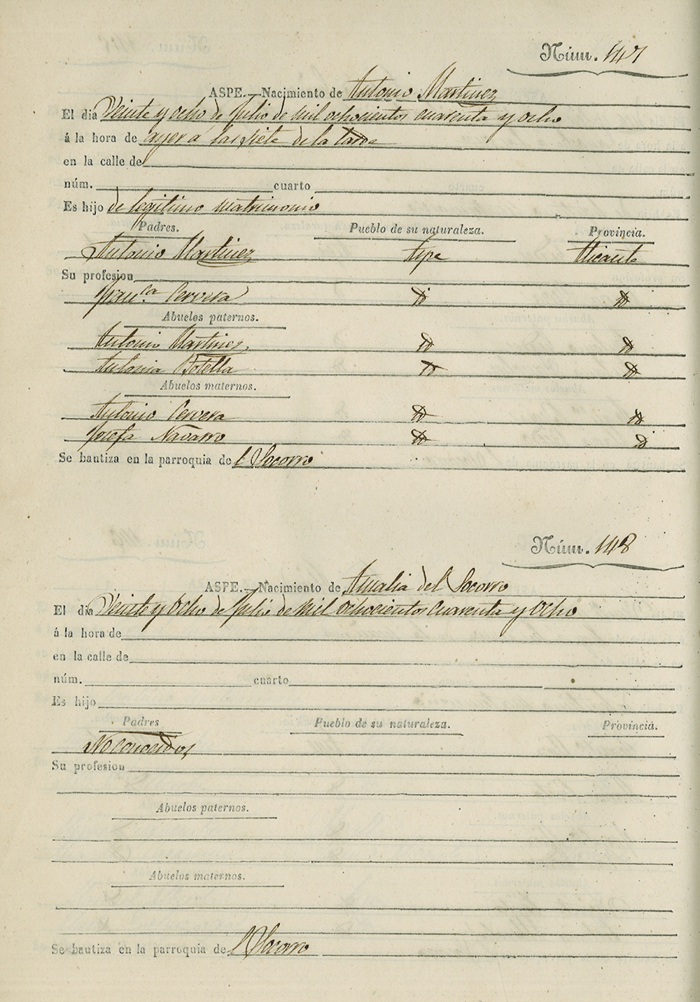 Núm. 147
ASPE.—Nacimiento de Antonio Martinez
El dia Veinte y ocho de Julio de mil ochocientos cuarenta y ocho
á la hora de ayer a las siete de la tarde
en la calle de
núm. cuarto
Es hijo de legitimo matrimonio
Padres. Pueblo de su naturaleza. Provincia.
Antonio Martinez Aspe Alicante
Su profesion
Fran.ca Cervera
Abuelos paternos.
Antonio Martinez
Antonia Botella
Abuelos maternos.
Antonio Cervera
Josefa Navarro
Se bautiza en la parroquia de el Socorro
Núm. 148
ASPE.—Nacimiento de Amalia del Socorro
El dia Veinte y Ocho de Julio de Mil ochocientos cuarenta y Ocho
á la hora de
en la calle de
núm. cuarto
Es hijo
Padres Pueblo de su naturaleza. Provincia.
No conocidos
Su profesion
Abuelos paternos.
Abuelos maternos.
Se bautiza en la parroquia de el Socorro